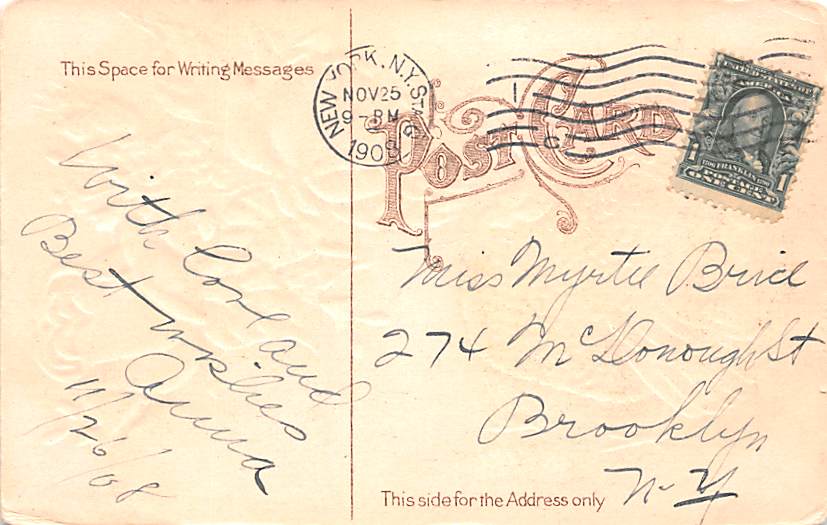 This Space for Writing Messages
With Love and
Best wishes
Anna
11/26/08
NEW YORK, N.Y. STA.
NOV 25
9 - PM
1908
1
C
POST CARD
UNITED STATES OF
AMERICA
1706 FRANKLIN 1790
1 1
POSTAGE
ONE CENT
Miss Myrtle Brice
274 McDonough St
Brooklyn
N-Y
This side for the Address only